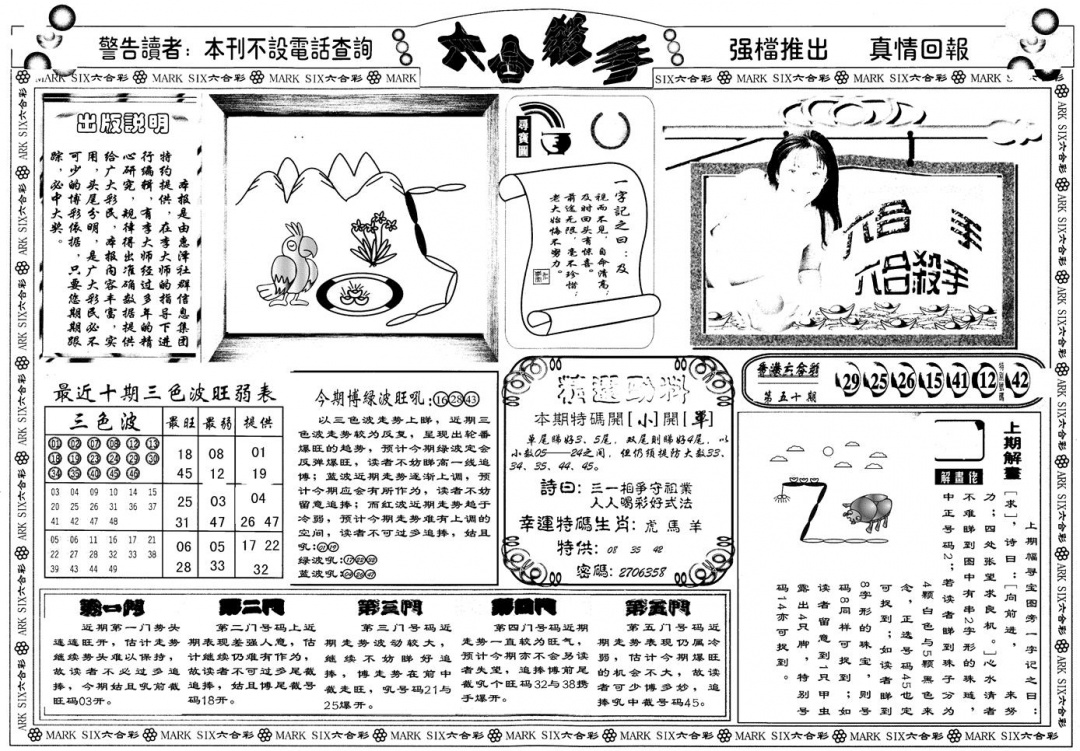 警告讀者：本刊不設電話查詢
六合殺手
强檔推出 真情回報
MARK SIX六合彩
出版説明
本报是由惠泽社群信息集团
特约提供，在李大师的指导下进
行编辑，有李大师经过多年的精
心研究，规律得出准确数据提供
给广大彩民，本报内容丰富，实
用，头尾分明，是广大彩民必不
可少的博彩依据，只要您期期跟
踪，必中大奖。
一字記之曰：及
視而不見，自命清高；
及时回头有惊喜。
前途无限，毫不珍惜；
老大始悔不努力。
六合殺手
六合殺手
香港六合彩
第五十期
29 25 26 15 41 12 特别號碼 42
最近十期三色波旺弱表
三色波 最旺 最弱 提供
01 02 07 08 12 13
18 19 23 24 29 30
34 35 40 45 46
18 45
08 12
01 19
03 04 09 10 14 15
20 25 26 31 36 37
41 42 47 48
25 31
03 47
04 26 47
05 06 11 16 17 21
22 27 28 32 33 38
39 43 44 49
06 28
05 33
17 22 32
今期博绿波旺吼：16 28 43
以三色波走势上睇，近期三
色波走势较为反复，呈现出轮番
爆旺的趋势，预计今期绿波定会
反弹爆旺，读者不妨睇高一线追
博；蓝波近期走势逐渐上调，预
计今期应会有所作为，读者不妨
留意追捧；而红波近期走势趋于
冷弱，预计今期走势难有上调的
空间，读者不可过多追捧，姑且
吼：
绿波吼：
蓝波吼：
精選動料
本期特碼開[小]開[單]
单尾睇好3、5尾，双尾则睇好4尾，以
小数05——24之间，但仍须提防大数33、
34、35、44、45。
詩曰：三一相争守祖業
人人喝彩好式法
幸運特碼生肖：虎 馬 羊
特供：08 35 42
密碼：2706358
上期解畫
解畫佬
上期幅寻宝图旁一字记之曰：
[求]，诗曰：[向前进， 来努
力；四处张望求良机。]心水清者
不难睇到图中有串2字形的珠琏，
中正号码2；若读者睇到珠子分为
4颗白色与5颗黑色来
念，正选号码45也定
可找到；如读者睇到
8字形的珠宝，则号
码8同样可找到；如
读者留意到1只甲虫
露出4只脚，特别号
码14亦可找到。
第一門
近期第一门势头
连连旺开，估计走势
继续势头难以保持，
故读者不必过多追
捧，今期姑且吼前截
旺码03开。
第二門
第二门号码上近
期表现差强人意，估
计继续仍难有作为，
故读者不可过多追
捧，姑且博尾截号
码18开。
第三門
第三门号码近
期走势波动较大，
继续不妨睇好追
捧，博走势在前中
截走旺，吼号码21与
25爆开。
第四門
第四门号码近期
走势一直较为旺气，
预计今期亦不会另读
者失望，追捧博前尾
截吼个旺码32与38携
手爆开。
第五門
第五门号码走
期走势表现仍属冷
弱，估计今期爆旺
的机会不大，故读
者可少博多妙，追
捧吼中截号码45。
MARK SIX六合彩